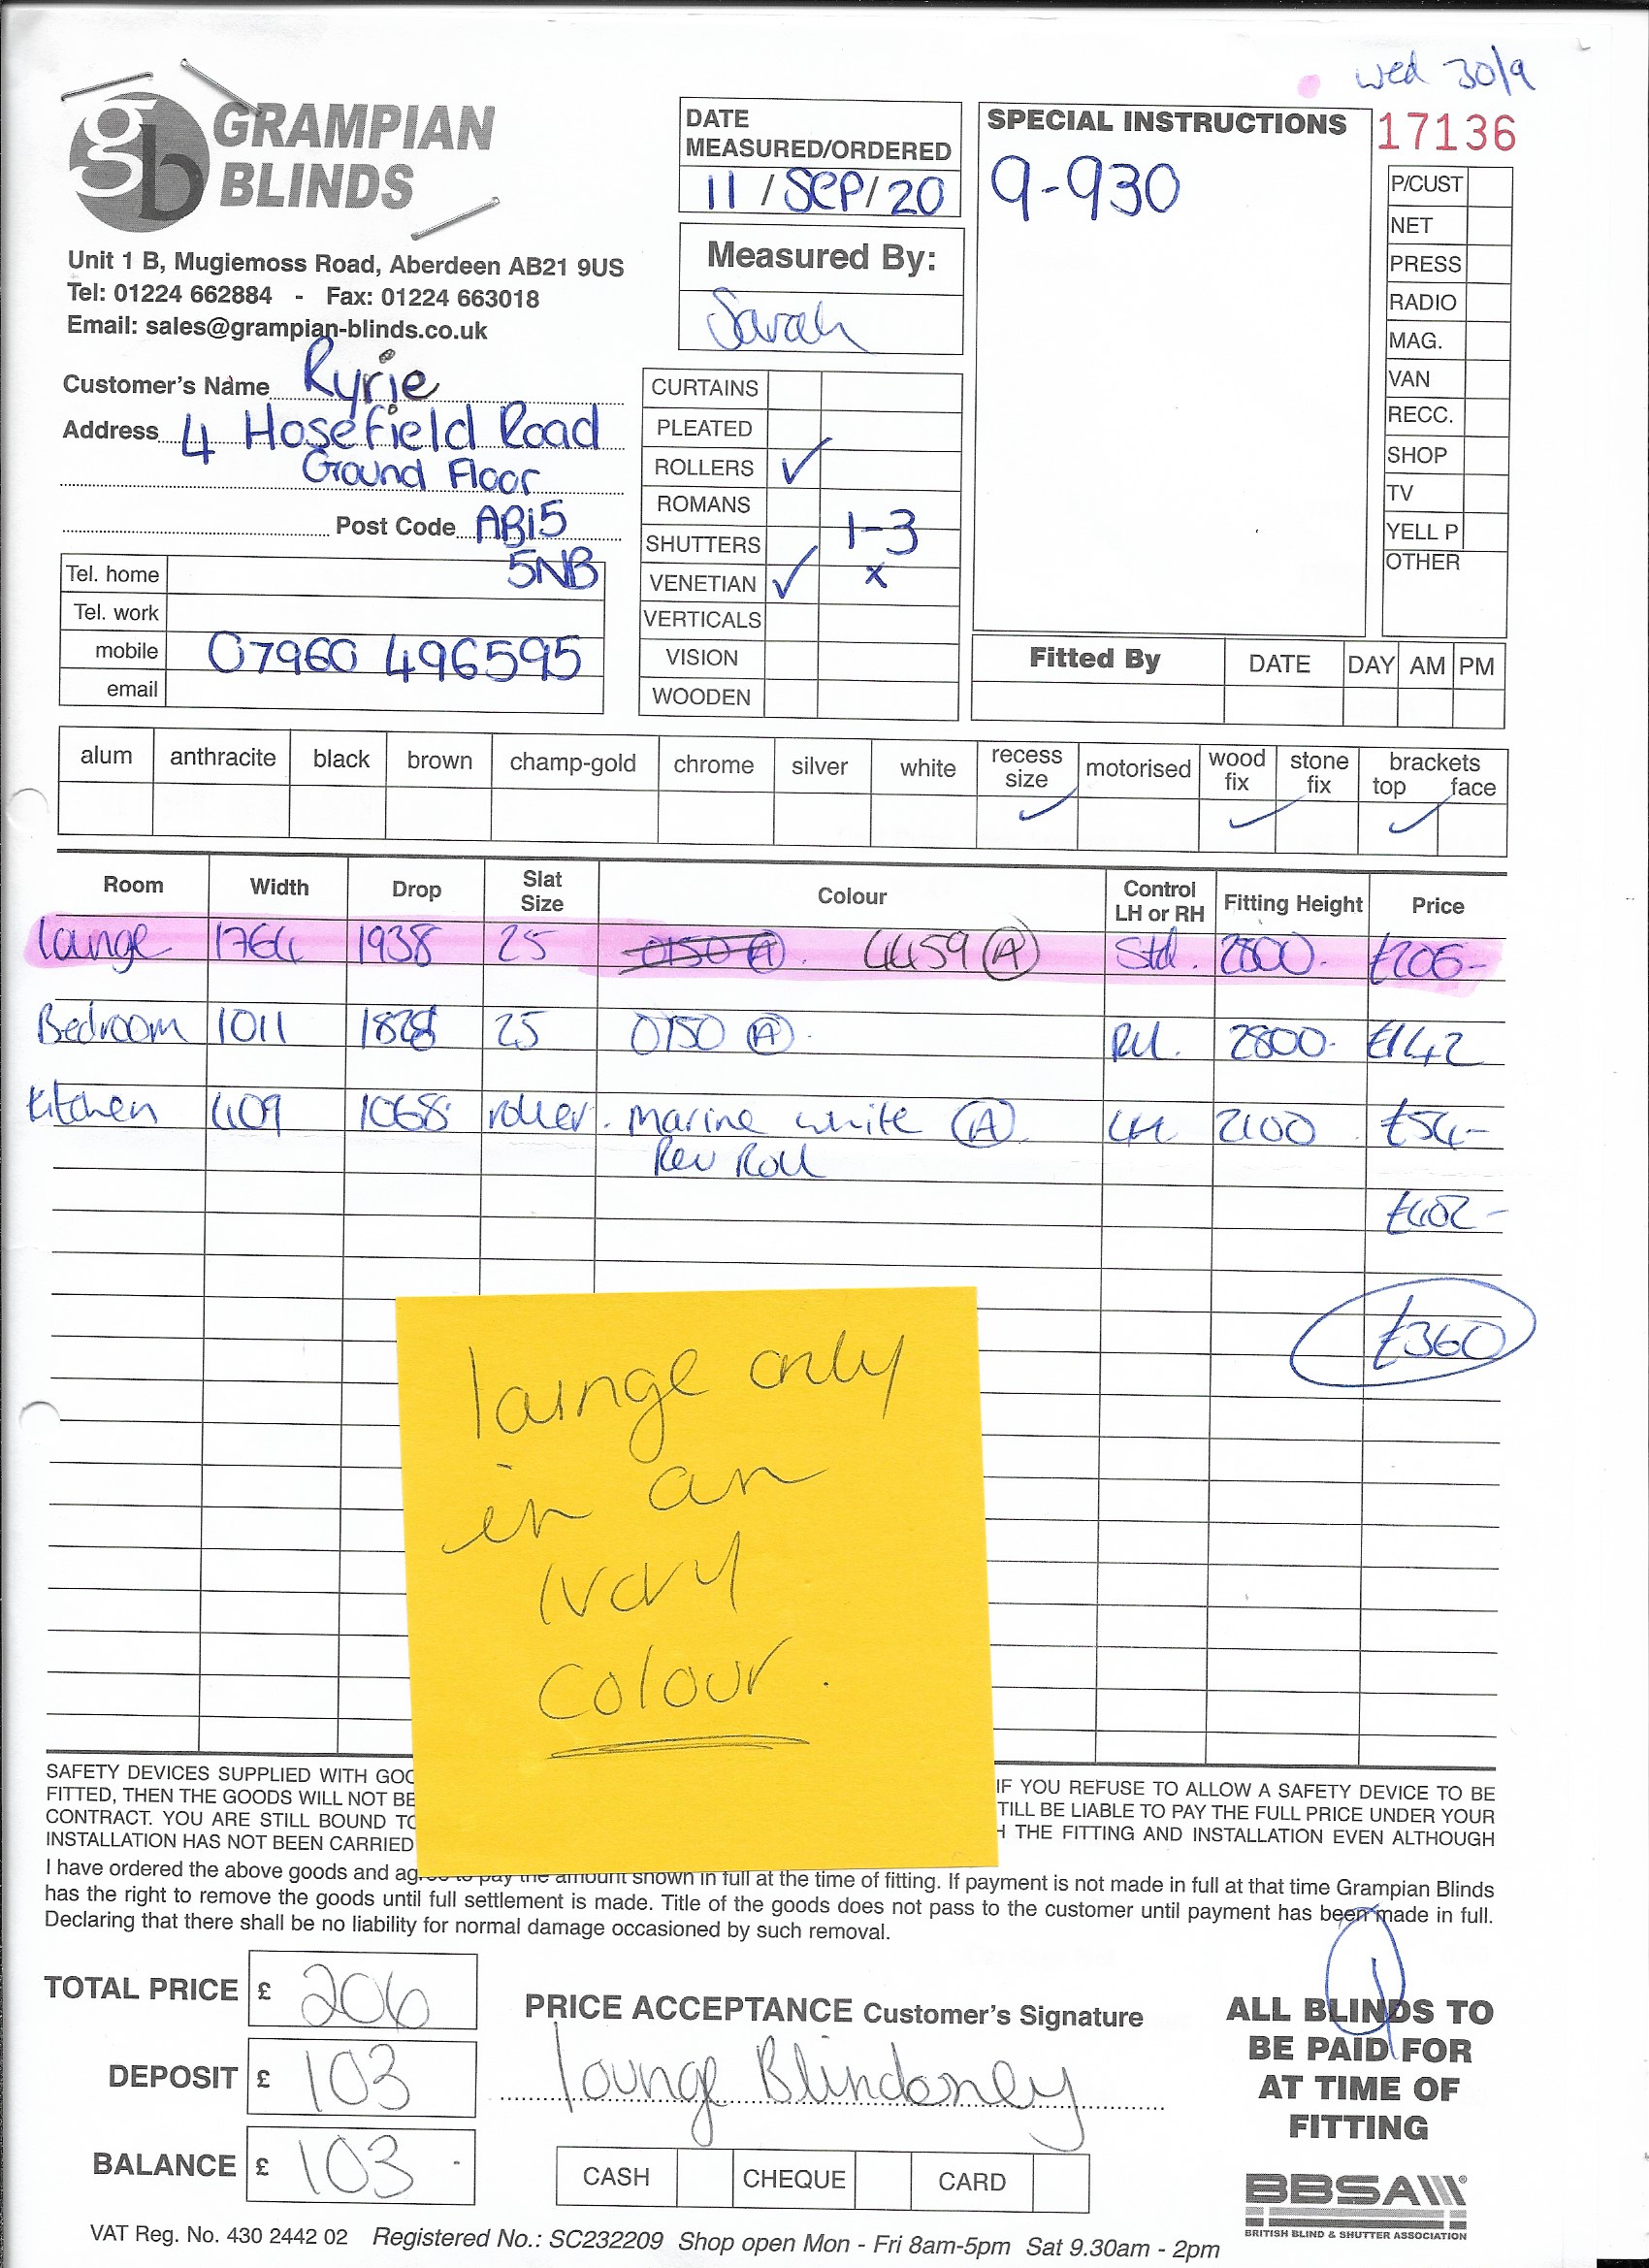 wed 30/9
GRAMPIAN
BLINDS
Unit 1 B, Mugiemoss Road, Aberdeen AB21 9US
Tel: 01224 662884 - Fax: 01224 663018
Email: sales@grampian-blinds.co.uk
DATE
MEASURED/ORDERED
11 / SEP / 20
Measured By:
Sarah
SPECIAL INSTRUCTIONS
9-930
17136
P/CUST
NET
PRESS
RADIO
MAG.
VAN
RECC.
SHOP
TV
YELL P
OTHER
Customer's Name Ryrie
Address 4 Hosefield Road
Ground Floor
Post Code AB15
5NB
Tel. home
Tel. work
mobile 07960 496595
email
CURTAINS
PLEATED
ROLLERS ✓
ROMANS
SHUTTERS 1-3
VENETIAN ✓ x
VERTICALS
VISION
WOODEN
Fitted By DATE DAY AM PM
alum anthracite black brown champ-gold chrome silver white recess size motorised wood fix stone fix brackets top face
✓ ✓ ✓
Room Width Drop Slat Size Colour Control LH or RH Fitting Height Price
lounge 1764 1938 25 0150 (A). 4459 (A) Std. 2800. £206-
Bedroom 1011 1828 25 0150 (A). RH. 2800. £142
Kitchen 409 1068 roller. Marine white (A) LH 2100 £54-
Rev Roll
£402-
£360
lounge only
in an
Ivory
colour.
SAFETY DEVICES SUPPLIED WITH GOO
IF YOU REFUSE TO ALLOW A SAFETY DEVICE TO BE
FITTED, THEN THE GOODS WILL NOT BE
TILL BE LIABLE TO PAY THE FULL PRICE UNDER YOUR
CONTRACT. YOU ARE STILL BOUND TO
THE FITTING AND INSTALLATION EVEN ALTHOUGH
INSTALLATION HAS NOT BEEN CARRIED
I have ordered the above goods and agree to pay the amount shown in full at the time of fitting. If payment is not made in full at that time Grampian Blinds
has the right to remove the goods until full settlement is made. Title of the goods does not pass to the customer until payment has been made in full.
Declaring that there shall be no liability for normal damage occasioned by such removal.
TOTAL PRICE £ 206
DEPOSIT £ 103
BALANCE £ 103.
PRICE ACCEPTANCE Customer's Signature
lounge Blind only
CASH CHEQUE CARD
ALL BLINDS TO
BE PAID FOR
AT TIME OF
FITTING
BBSA
BRITISH BLIND & SHUTTER ASSOCIATION
VAT Reg. No. 430 2442 02 Registered No.: SC232209 Shop open Mon - Fri 8am-5pm Sat 9.30am - 2pm